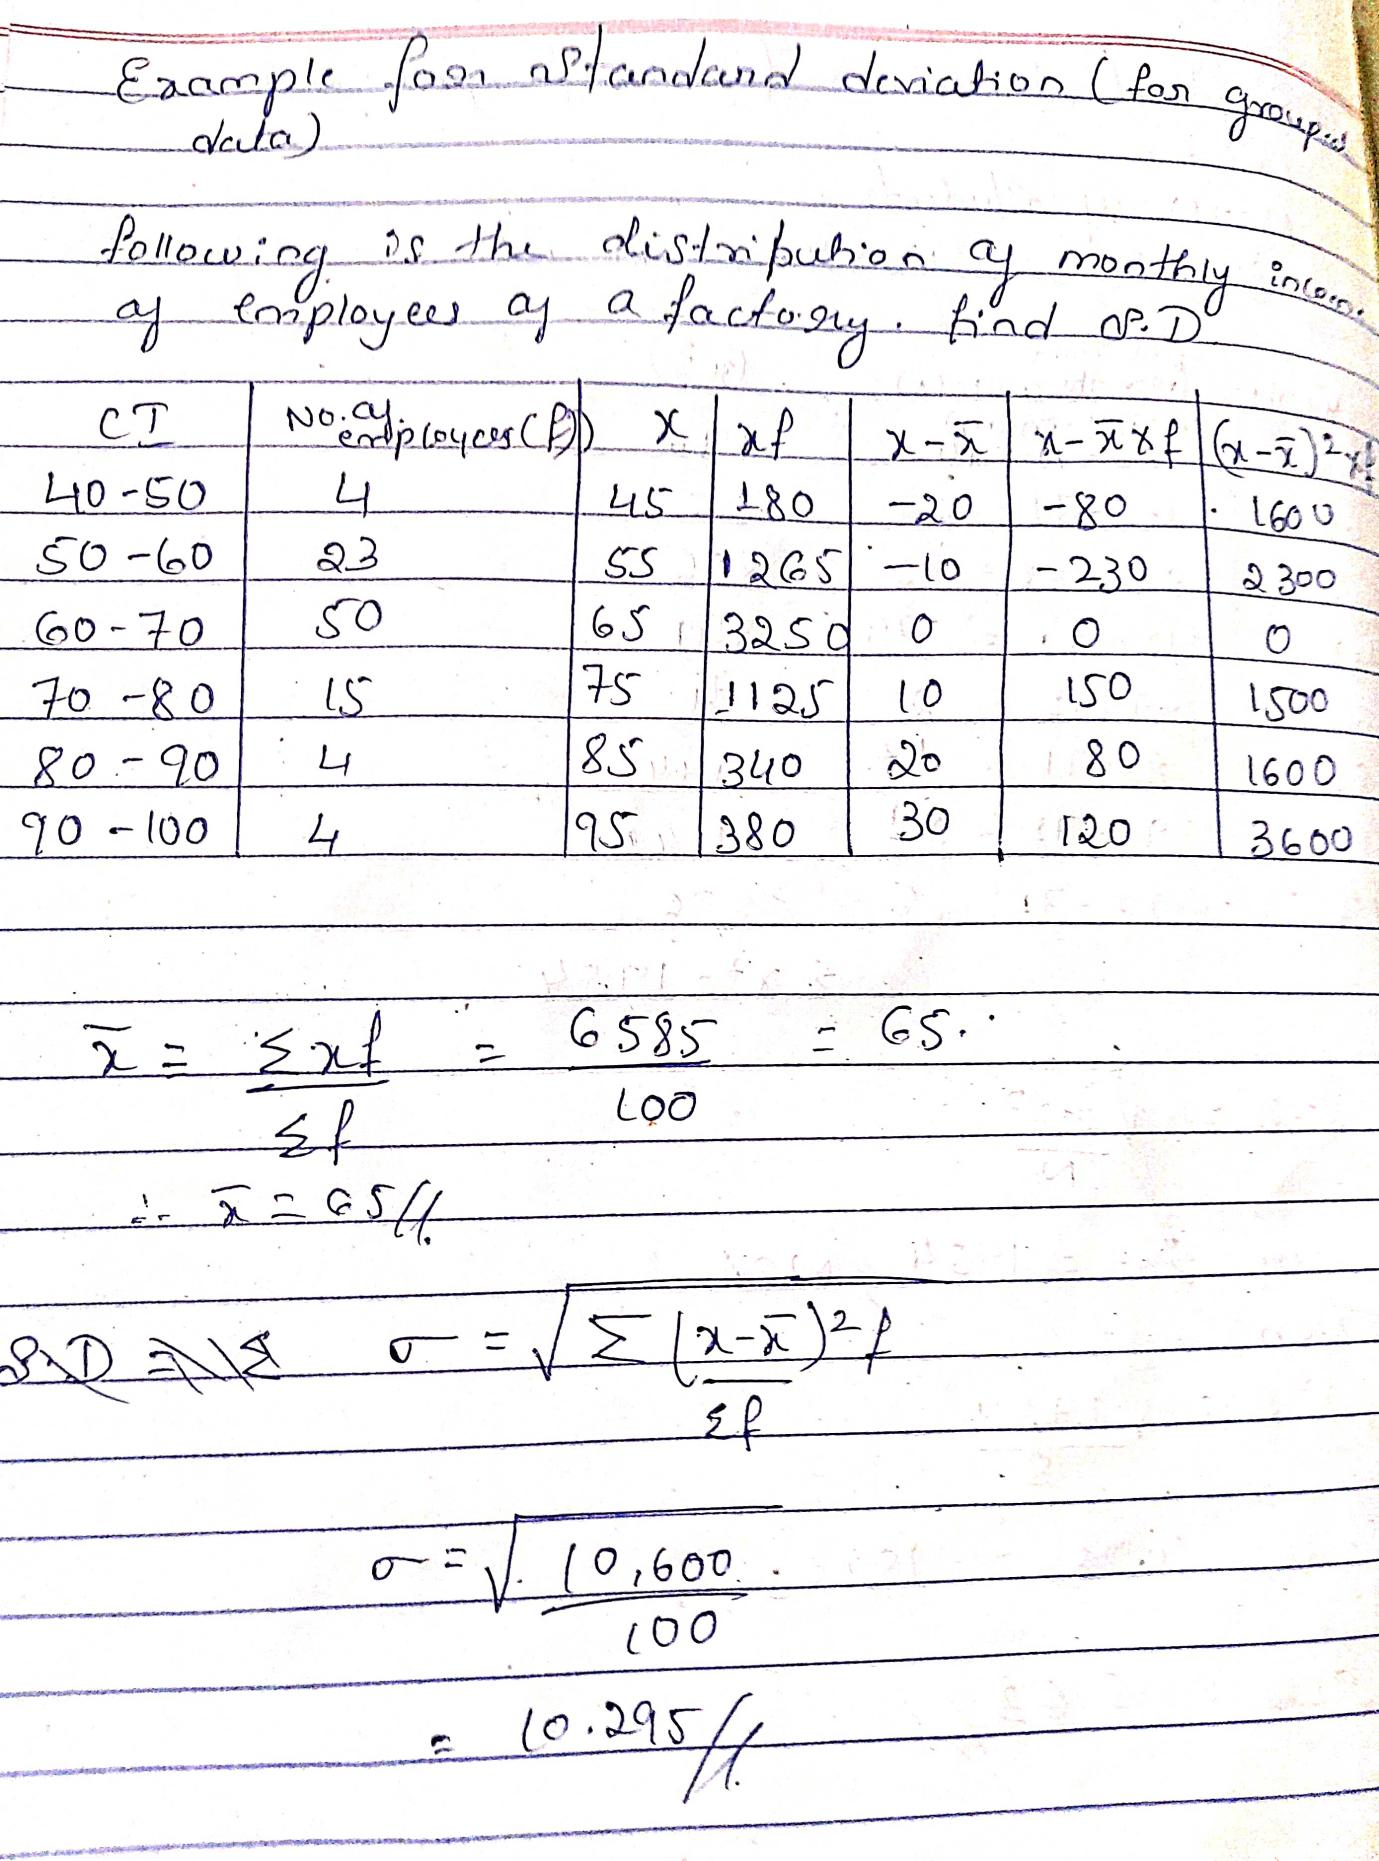 Example for standard deviation (for grouped
data)
following is the distribution of monthly incom.
of employees of a factory. find S.D
CI No. of employees (f) x xf x-x̄ x-x̄ x f (x-x̄)² x f
40-50 4 45 180 -20 -80 1600
50-60 23 55 1265 -10 -230 2300
60-70 50 65 3250 0 0 0
70-80 15 75 1125 10 150 1500
80-90 4 85 340 20 80 1600
90-100 4 95 380 30 120 3600
x̄ = Σxf = 6585 = 65.
Σf 100
∴ x̄ = 65//.
S.D σ = √Σ(x-x̄)²f
Σf
σ = √10,600
100
= 10.295//.